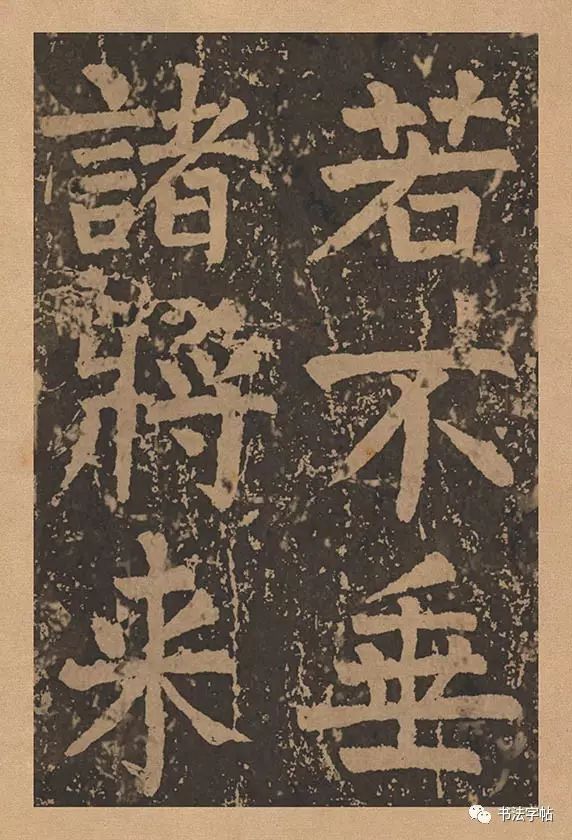 若不垂
諸將来
书法字帖